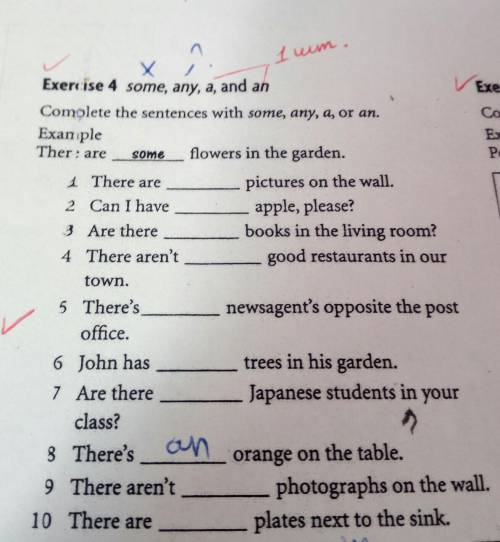 1 шт.
Exercise 4 some, any, a, and an
Complete the sentences with some, any, a, or an.
Example
There are some flowers in the garden.
1 There are ________ pictures on the wall.
2 Can I have ________ apple, please?
3 Are there ________ books in the living room?
4 There aren't ________ good restaurants in our
town.
5 There's ________ newsagent's opposite the post
office.
6 John has ________ trees in his garden.
7 Are there ________ Japanese students in your
class?
8 There's an orange on the table.
9 There aren't ________ photographs on the wall.
10 There are ________ plates next to the sink.
Exe
Co
Ex